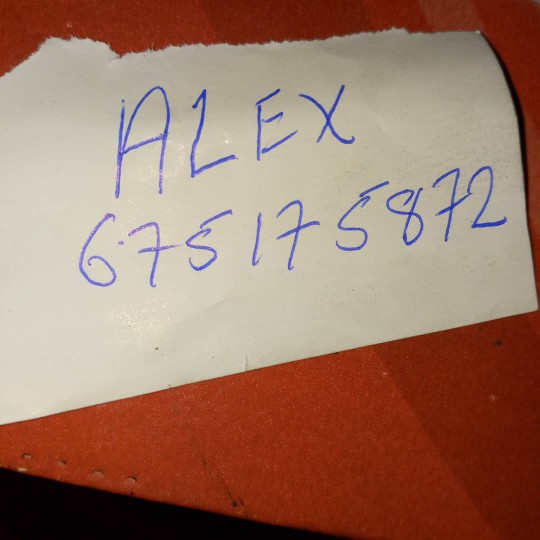 ALEX
675175872